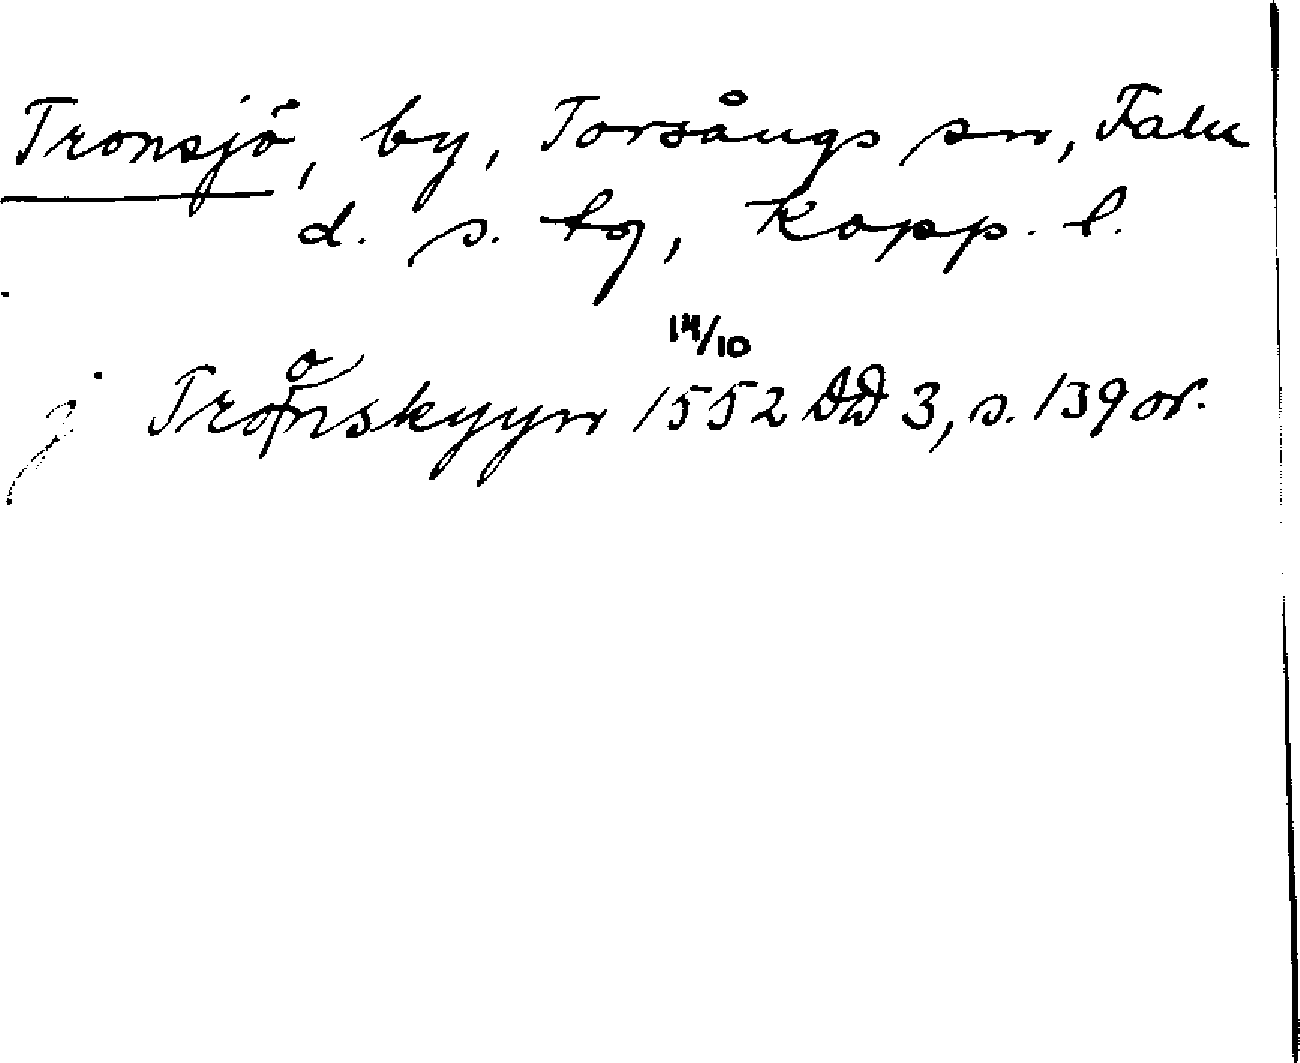 Tronsjö, by, Torsångs sn, Falu
d. s. tg, Kopp. l.
14/10
j Tronskyyn 1552 DD 3, s. 139 or.